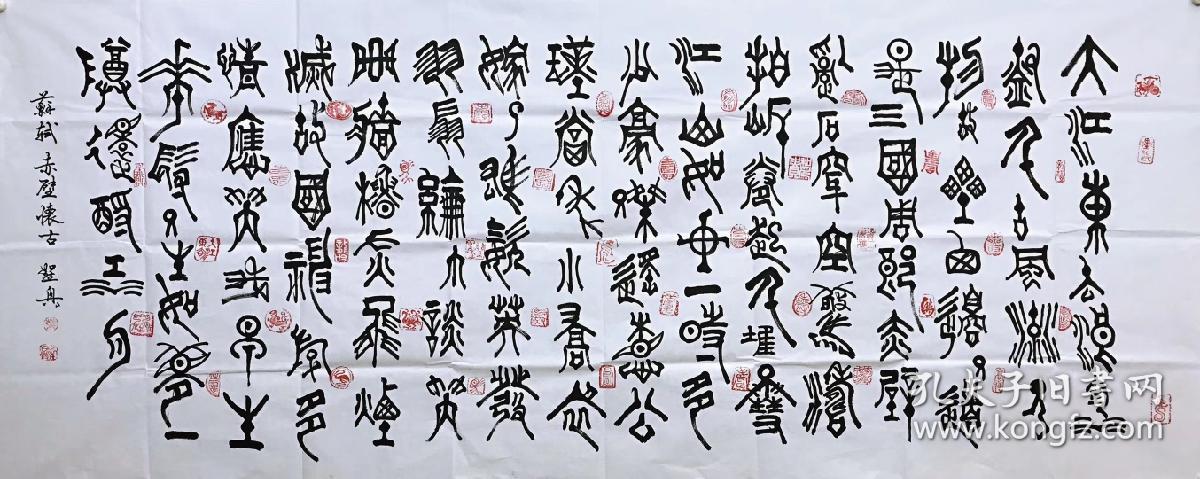 大江東去浪淘
盡千古風流人
物故壘西邊人道
是三國周郎赤壁
亂石穿空驚濤
拍岸卷起千堆雪
江山如畫一時多
少豪傑遙想公
瑾當年小喬初
嫁了雄姿英發
羽扇綸巾談笑
間檣櫓灰飛煙
滅故國神游多
情應笑我早生
華髮人生如夢一
尊還酹江月
蘇軾 赤壁懷古
孔夫子旧书网
www.kongfz.com